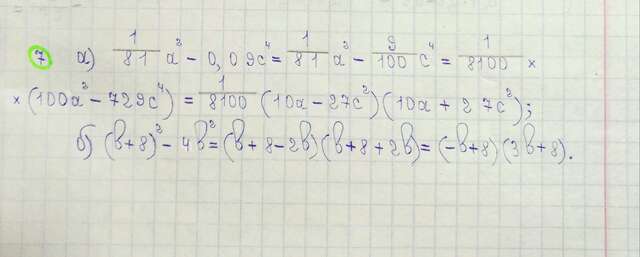 7 а) 1/81 a² - 0,09c⁴ = 1/81 a² - 9/100 c⁴ = 1/8100 ×
× (100a² - 729c⁴) = 1/8100 (10a - 27c²)(10a + 27c²);
б) (b+8)² - 4b² = (b+8-2b)(b+8+2b) = (-b+8)(3b+8).